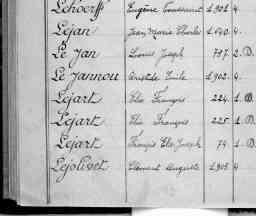 Lehoerff Eugène Toussaint 1.901 4.
Lejan Jean Marie Charles 1.640 4.
Le Jan Louis Joseph 717 2. D.
Le Jannou Aristide Emile 1.902 4.
Lejart Elie François 224 1. D.
Lejart Elie François 225 1. D.
Lejart François Elie Joseph 79 1. D.
Lejolivet Clément Auguste 1.903 4.